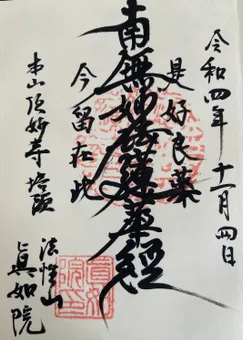 令和四年十一月四日
是好良薬
南無妙法蓮華経
今留在此
本山頂妙寺塔頭
法性山
真如院